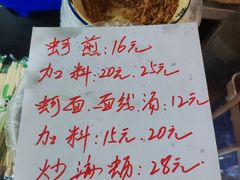 蚵煎:16元
加料:20元.25元
蚵面.面线汤:12元
加料:15元.20元
炒海蛎:28元